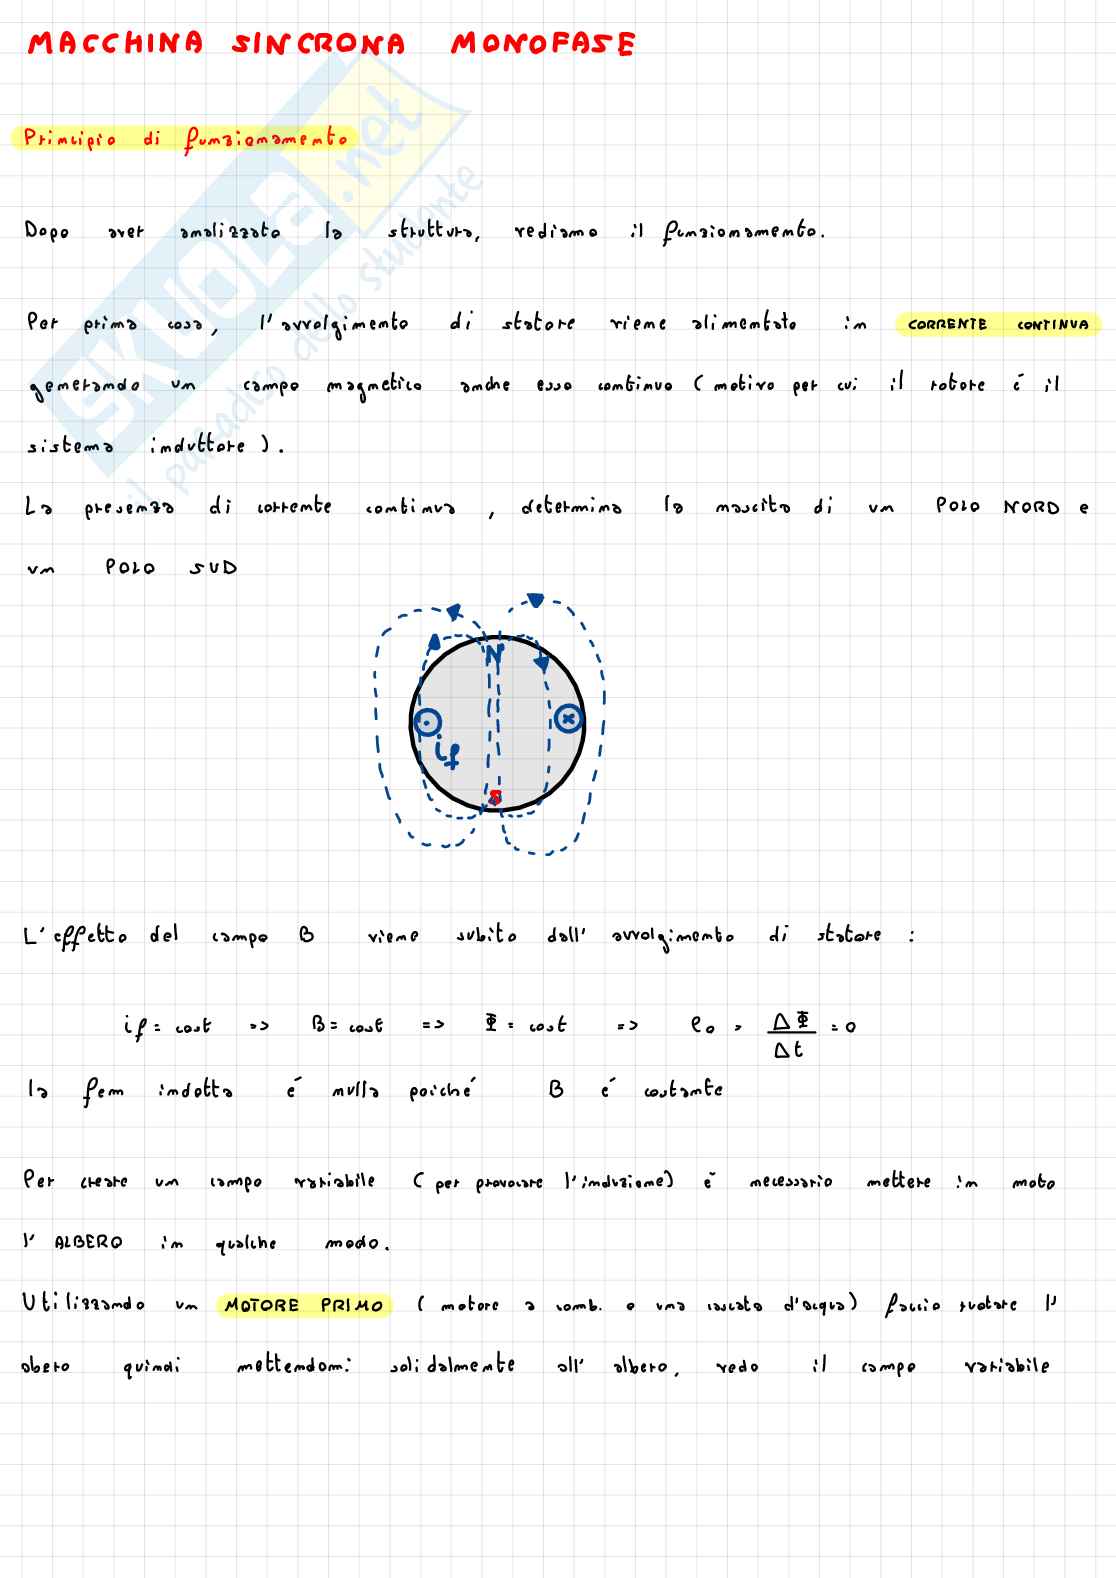 MACCHINA SINCRONA MONOFASE
Principio di funzionamento
Dopo aver analizzato la struttura, vediamo il funzionamento.
Per prima cosa, l'avvolgimento di statore viene alimentato in CORRENTE CONTINUA
generando un campo magnetico anche esso continuo (motivo per cui il rotore é il
sistema induttore).
La presenza di corrente continua, determina la nascita di un POLO NORD e
un POLO SUD
N
if
S
L'effetto del campo B viene subito dall'avvolgimento di statore :
if = cost => B = cost => Φ = cost => e0 = ΔΦ/Δt = 0
la fem indotta é nulla poiché B é costante
Per creare un campo variabile (per provocare l'induzione) é necessario mettere in moto
l'ALBERO in qualche modo.
Utilizzando un MOTORE PRIMO (motore a comb. o una cascata d'acqua) faccio ruotare l'
abero quindi mettendomi solidalmente all'albero, vedo il campo variabile
SKUOLA.net
il paradiso dello studente